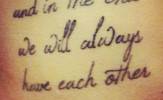 and in the end
we will always
have each other